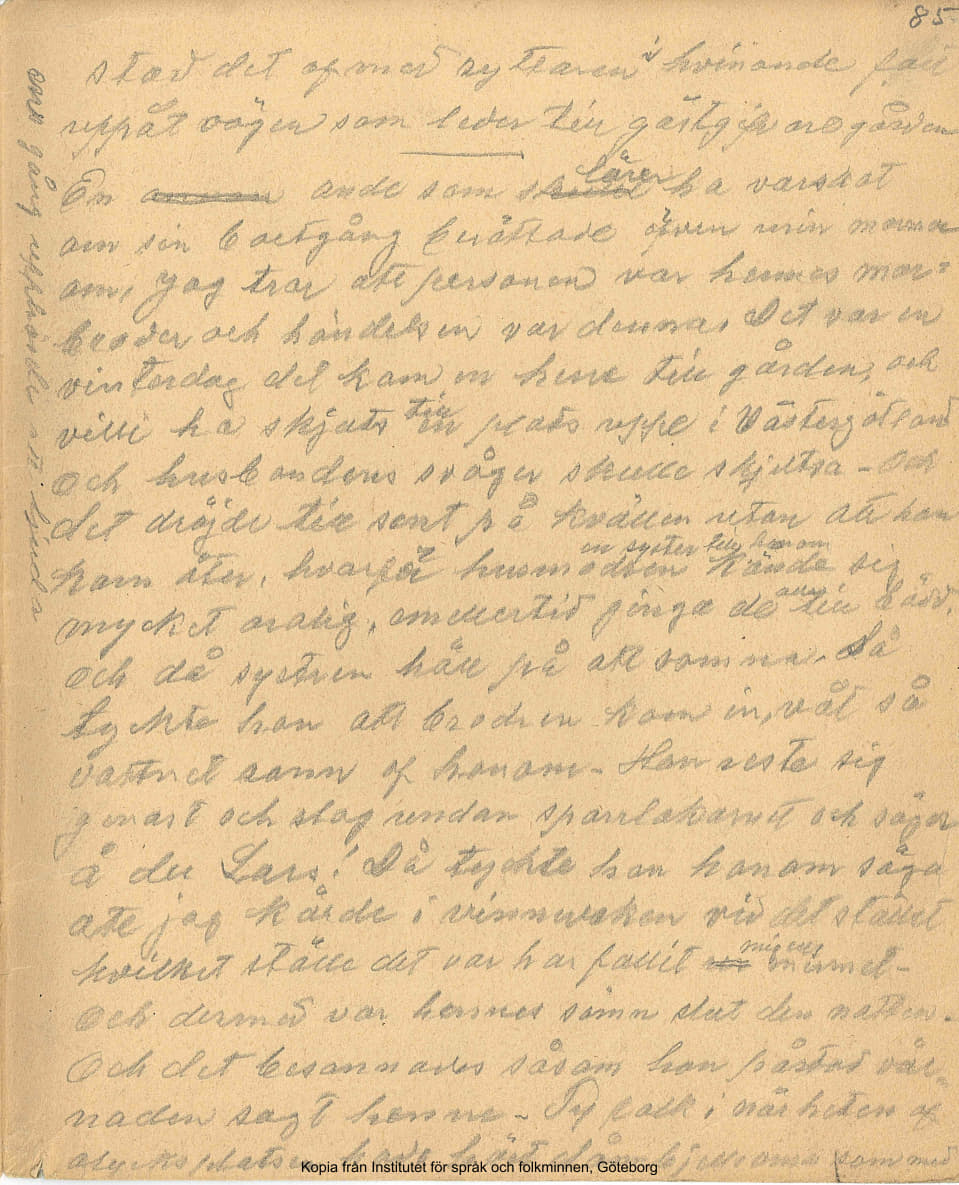 85
stod det af med ryttaren i hvinande
uppåt vägen som leder till gästgifvaregården
En ande som lärer ha varskot
om sin bortgång berättade äfven min mormor
om, jag tror att personen var hennes mor=
broder och händelsen var denna. Det var en
vinterdag det kom en herre till gården, och
ville ha skjuts till en plats uppe i Västergötland
Och husbondens svåger skulle skjutsa - Och
det dröjde till sent på kvällen utan att han
kom åter, hvarför husmodren en syster till honom kände sig
mycket orolig, emellertid gingo de alla till sängs,
och då systren höll på att somna. Då
tyckte hon att brodren kom in, våt så
vattnet rann af honom - Hon reste sig
genast och slog undan sparrlakanet och säger
å du Lars! Då tyckte hon honom säga
att jag körde i vinnvaken vid det stället
hvilket ställe det var har fallit mig ur minnet -
Och dermed var hennes sömn slut den natten -
Och det besannades såsom hon påstod vål=
naden sagt henne - Ty folk i närheten af
olycksplatsen hade hört som med
Kopia från Institutet för språk och folkminnen, Göteborg
en gång upphörde att ljuda